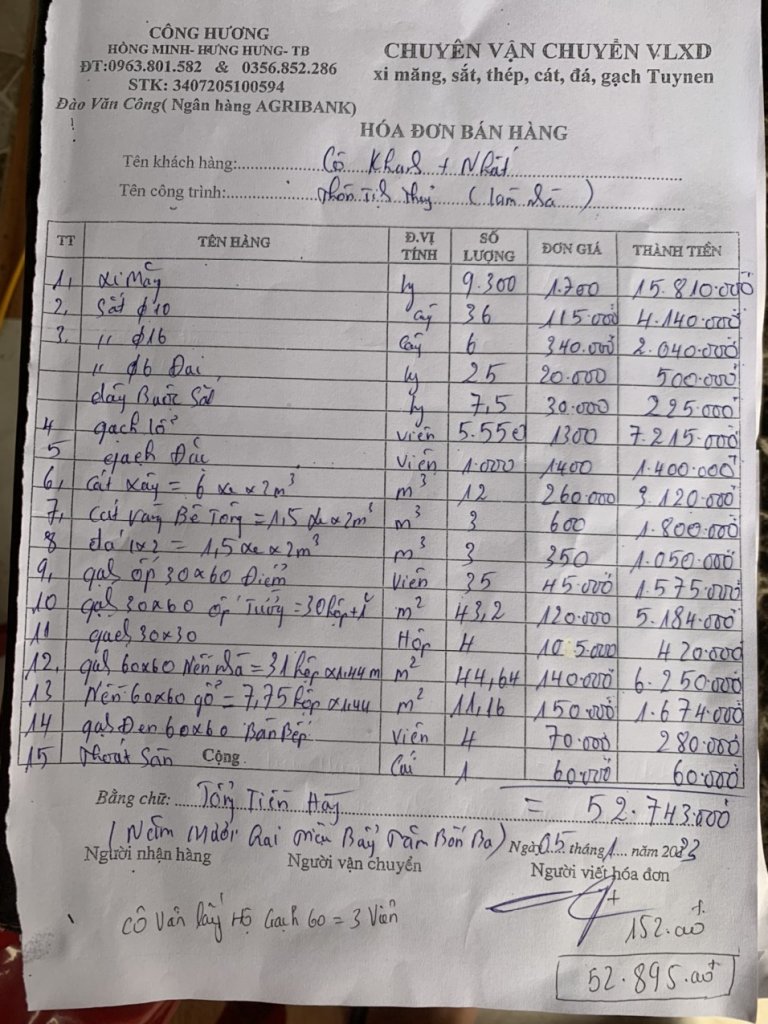 CÔNG HƯƠNG
HỒNG MINH- HƯNG HƯNG- TB
ĐT:0963.801.582 & 0356.852.286
STK: 3407205100594
Đào Văn Công( Ngân hàng AGRIBANK)
CHUYÊN VẬN CHUYỂN VLXD
xi măng, sắt, thép, cát, đá, gạch Tuynen
HÓA ĐƠN BÁN HÀNG
Tên khách hàng: Cô + Nhất
Tên công trình: Thôn Tịnh Thuỷ (làm nhà)
TT TÊN HÀNG Đ.VỊ TÍNH SỐ LƯỢNG ĐƠN GIÁ THÀNH TIỀN
1, xi Măng kg 9.300 1.700 15.810.000đ
2. Sắt ϕ10 cây 36 115.000đ 4.140.000đ
3. " ϕ16 cây 6 340.000đ 2.040.000đ
" ϕ6 Đai kg 25 20.000 500.000đ
dây Buộc Sắt kg 7,5 30.000đ 225.000đ
4 gạch lỗ viên 5.550 1300 7.215.000đ
5 gạch Đặc viên 1.000 1400 1.400.000đ
6, Cát xây = 6 xe x 2m³ m³ 12 260.000 3.120.000đ
7, Cát vàng Bê Tông = 1,5 xe x 2m³ m³ 3 600 1.800.000đ
8 đá 1x2 = 1,5 xe x 2m³ m³ 3 350 1.050.000đ
9, gạch ốp 30x60 Điểm viên 35 45.000đ 1.575.000đ
10 gạch 30x60 ốp Tường = 30 hộp + m² 43,2 120.000đ 5.184.000đ
11 gạch 30x30 Hộp 4 105.000 420.000đ
12. gạch 60x60 Nền nhà = 31 hộp x1,44m m² 44,64 140.000đ 6.250.000đ
13 Nền 60x60 gỗ = 7,75 hộp x1,44 m² 11,16 150.000đ 1.674.000đ
14 gạch Đen 60x60 Bàn Bếp viên 4 70.000đ 280.000đ
15 Thoát Sàn Cái 1 60.000đ 60.000đ
Cộng
Bằng chữ: Tổng Tiền Hàng = 52.743.000đ
(Năm Mươi Hai Triệu Bảy Trăm Bốn Ba)
Ngày 05 tháng 1 năm 2023
Người nhận hàng Người vận chuyển Người viết hóa đơn
Cô Vân lấy Hộ Gạch 60 = 3 Viên
152.000đ
52.895.000đ